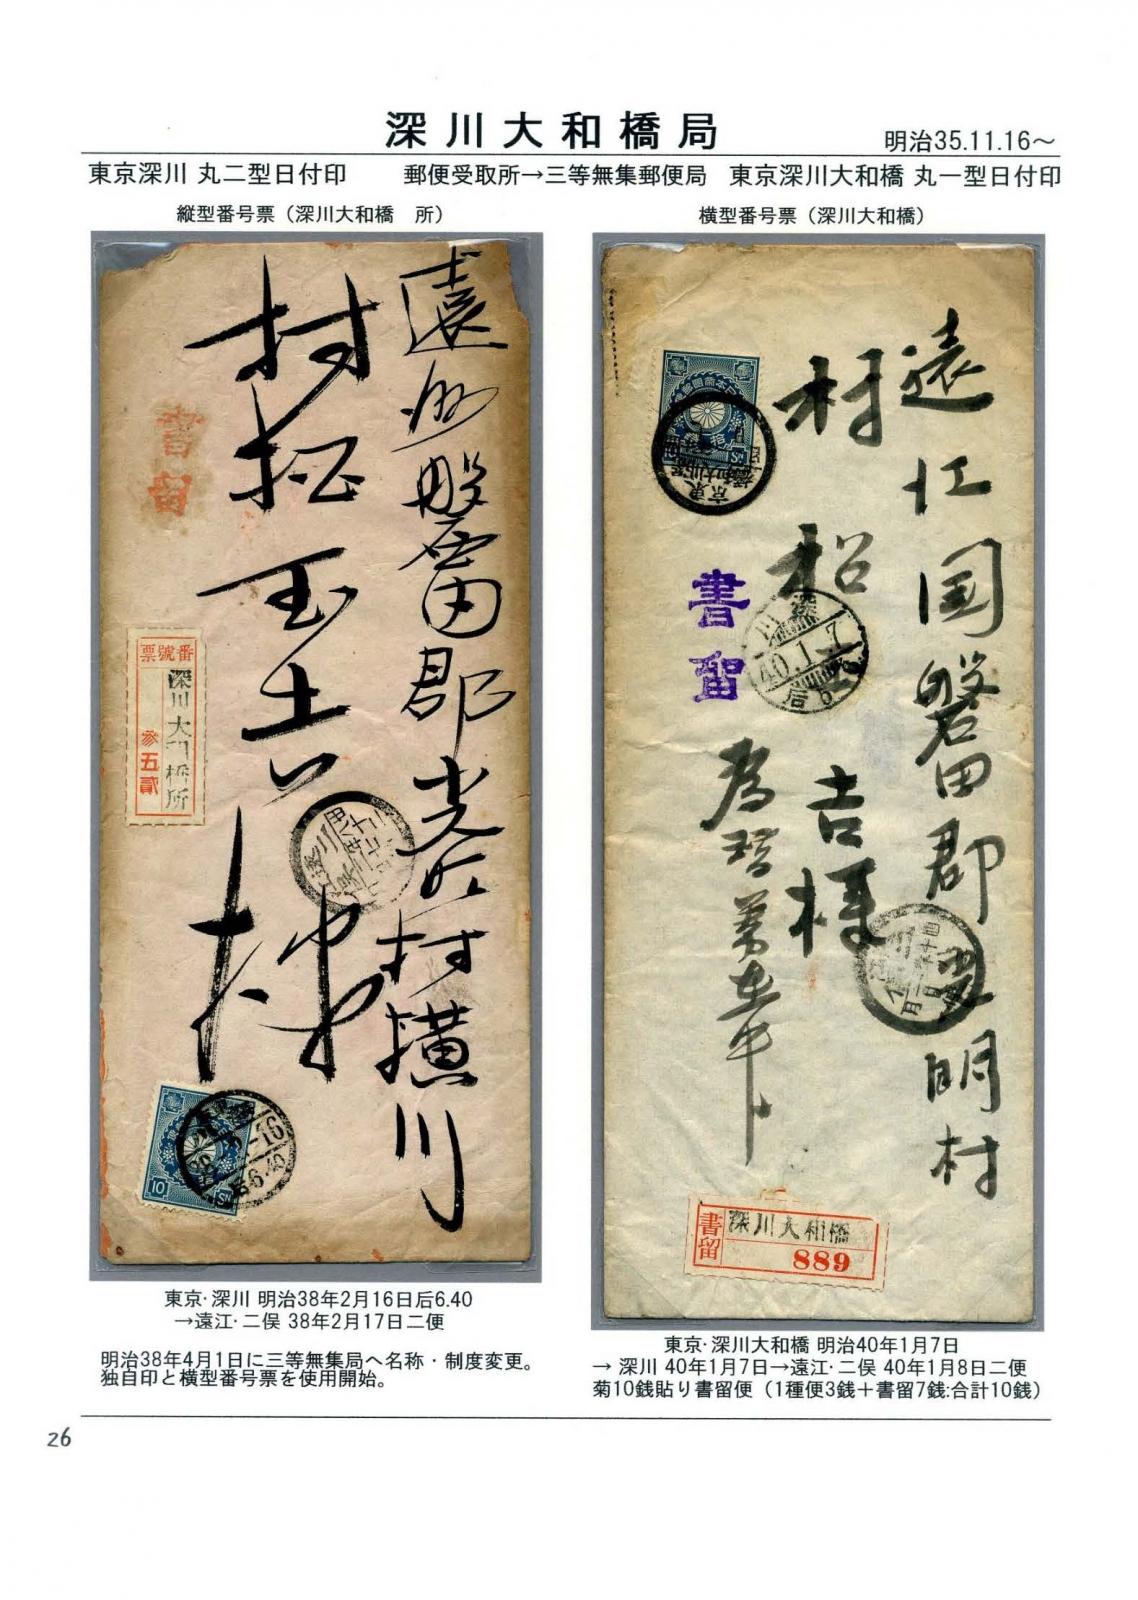 深川大和橋局
明治35.11.16～
東京深川 丸二型日付印
郵便受取所→三等無集郵便局
東京深川大和橋 丸一型日付印
縦型番号票（深川大和橋　所）
横型番号票（深川大和橋）
遠州磐田郡光明村横川
村松
書留
番號票
深川大和橋所
参五貳
10
遠江国磐田郡光明村
村松
吉様
書留
深川
40.1.7
書留
深川大和橋
889
東京･深川 明治38年2月16日后6.40
→遠江･二俣 38年2月17日二便
明治38年4月1日に三等無集局へ名称・制度変更。
独自印と横型番号票を使用開始。
東京･深川大和橋 明治40年1月7日
→ 深川 40年1月7日→遠江･二俣 40年1月8日二便
菊10銭貼り書留便（1種便3銭＋書留7銭:合計10銭）
26